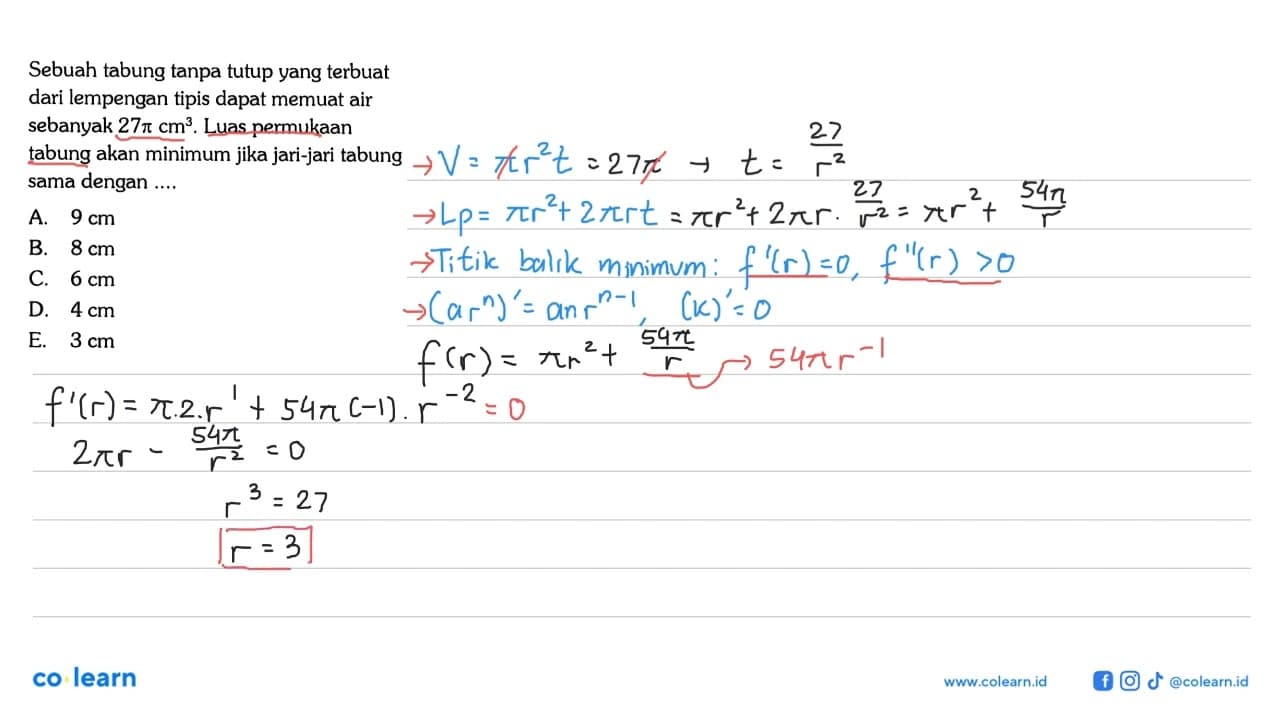 Sebuah tabung tanpa tutup yang terbuat
dari lempengan tipis dapat memuat air
sebanyak 27π cm³. Luas permukaan
tabung akan minimum jika jari-jari tabung
sama dengan ....
A. 9 cm
B. 8 cm
C. 6 cm
D. 4 cm
E. 3 cm
→ V = πr²t = 27π → t = 27/r²
→ Lp = πr² + 2πrt = πr² + 2πr . 27/r² = πr² + 54π/r
→ Titik balik minimum: f'(r) = 0, f''(r) > 0
→ (arⁿ)' = anrⁿ⁻¹, (k)' = 0
f(r) = πr² + 54π/r → 54πr⁻¹
f'(r) = π.2.r¹ + 54π(-1).r⁻² = 0
2πr - 54π/r² = 0
r³ = 27
r = 3
co learn
www.colearn.id
@colearn.id